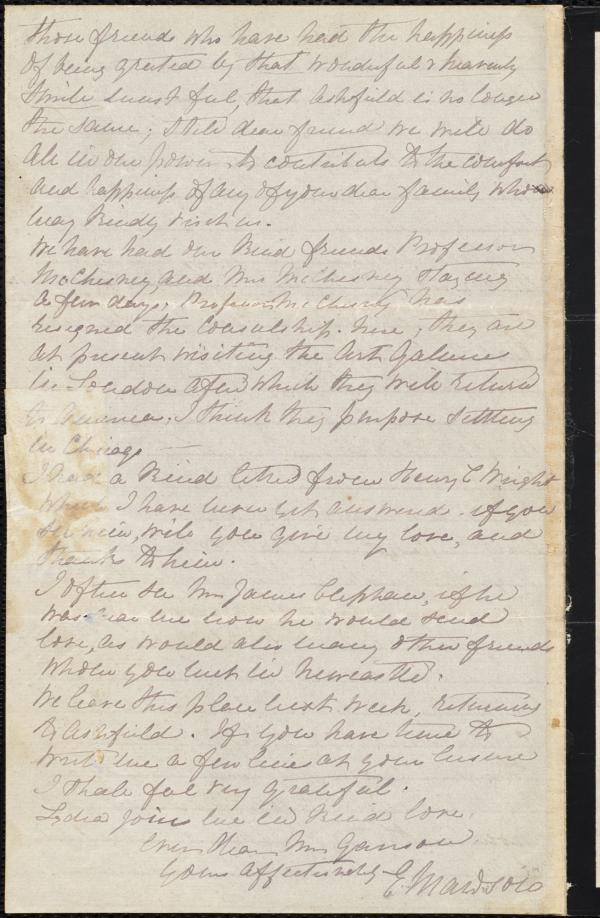 those friends who have had the happiness
of being greeted by that wonderful & heavenly
smile must feel, that Ashfield is no longer
the same; still dear friend we will do
all in our power to contribute to the comfort
and happiness of any of your dear family who
may kindly visit us.
We have had our kind friends Professor
McChesney, and Mrs McChesney staying
a few days, Professor McChesney has
resigned the Consulship here, they are
at present visiting the Art Galleries
in London after which they will return
to America. I think they purpose settling
in Chicago —
I had a kind letter from Henry C Wright
which I have never yet answered. if you
see him, will you give my love, and
thanks to him.
I often see Mr James Clephan, if he
was near me now he would send
love, as would also many other friends
whom you met in Newcastle.
We leave this place next week, returning
to Ashfield. If you have time to
write me a few lines at your leisure
I shall feel very grateful.
Lydia joins me in kind love.
Ever dear Mr Garrison
yours affectionately E Mawson